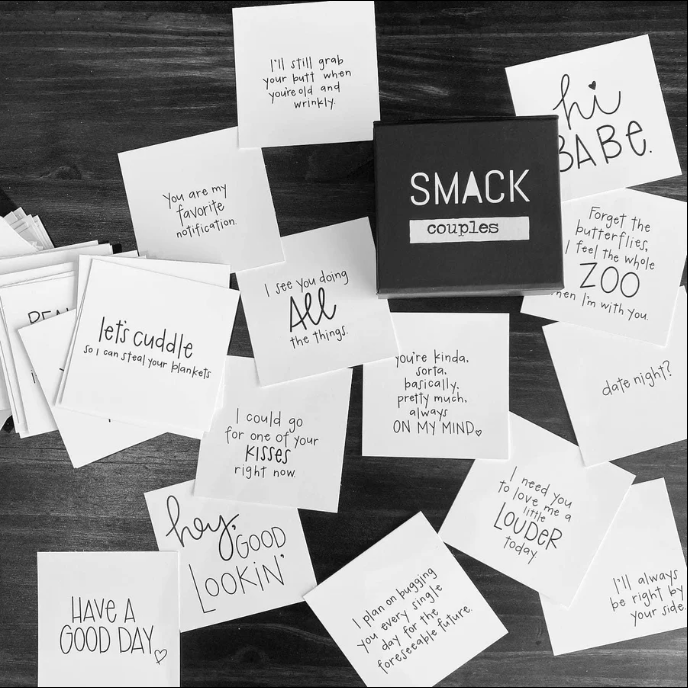 I'll still grab
your butt when
you're old and
wrinkly.
hi
BABE.
SMACK
couples
You are my
favorite
notification.
Forget the
butterflies,
I feel the whole
ZOO
when I'm with you.
I see you doing
All
the things.
let's cuddle
so I can steal your blankets
you're kinda,
sorta,
basically,
pretty much,
always
ON MY MIND
date night?
I could go
for one of your
KISSES
right now.
I need you
to love me a
little
LOUDER
today
hey,
GOOD
LOOKIN'
HAVE A
GOOD DAY
I plan on bugging
you every single
day for the
foreseeable future.
I'll always
be right by
your side.